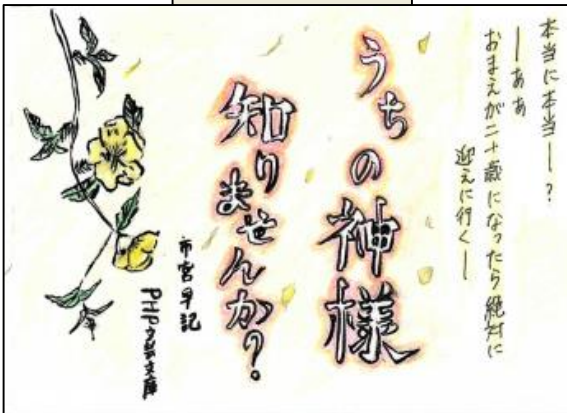 本当に本当―？
―ああ
おまえが二十歳になったら絶対に
迎えに行く―
うちの神様
知りませんか？
市宮早記
PHP文芸文庫